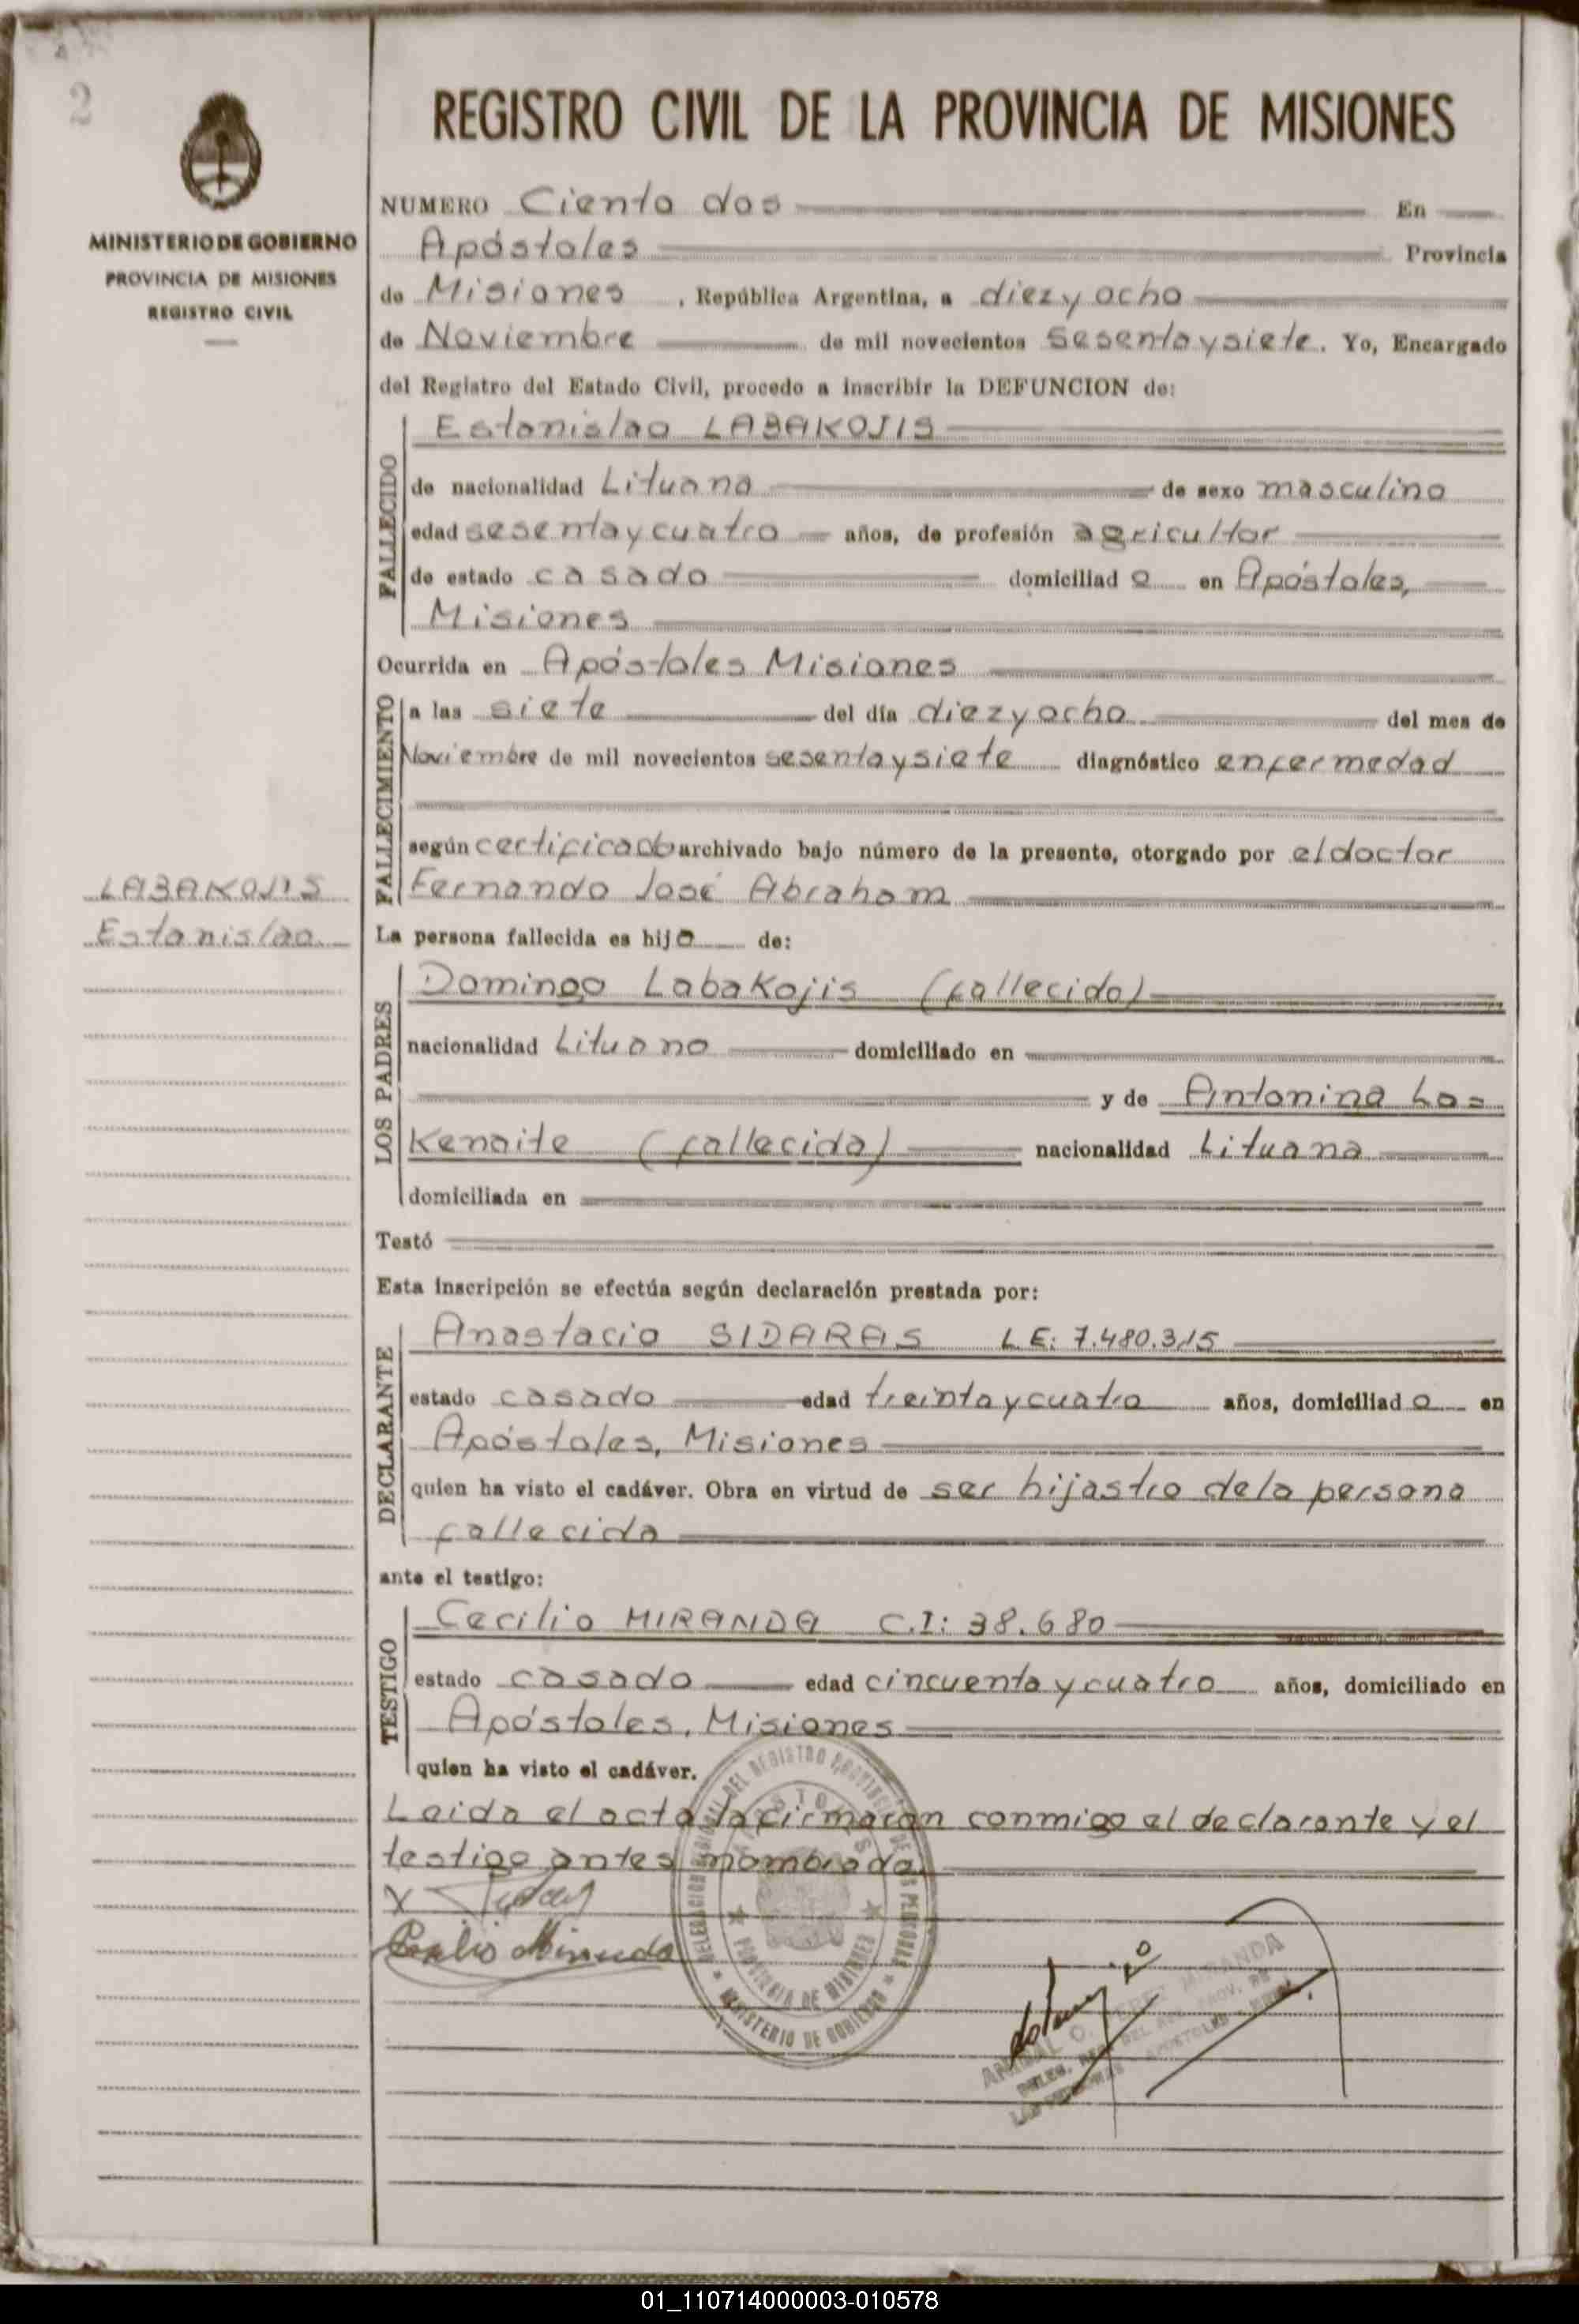 2
MINISTERIO DE GOBIERNO
PROVINCIA DE MISIONES
REGISTRO CIVIL
LABAKOJIS
Estanislao
REGISTRO CIVIL DE LA PROVINCIA DE MISIONES
NUMERO Ciento dos En
Apóstoles Provincia
de Misiones, República Argentina, a diezyocho
de Noviembre de mil novecientos sesentaysiete. Yo, Encargado
del Registro del Estado Civil, procedo a inscribir la DEFUNCION de:
FALLECIDO
Estanislao LABAKOJIS
de nacionalidad Lituana de sexo masculino
edad sesentaycuatro años, de profesión agricultor
de estado casado domiciliad o en Apóstoles,
Misiones
Ocurrida en Apóstoles Misiones
FALLECIMIENTO
a las siete del día diezyocho del mes de
Noviembre de mil novecientos sesentaysiete diagnóstico enfermedad
según certificado archivado bajo número de la presente, otorgado por el doctor
Fernando José Abraham
La persona fallecida es hijo de:
LOS PADRES
Domingo Labakojis (fallecido)
nacionalidad Lituano domiciliado en
y de Antonina La=
Kenaite (fallecida) nacionalidad Lituana
domiciliada en
Testó
Esta inscripción se efectúa según declaración prestada por:
DECLARANTE
Anastacio SIDARAS L.E: 7.480.315
estado casado edad treintaycuatro años, domiciliad o en
Apóstoles, Misiones
quien ha visto el cadáver. Obra en virtud de ser hijastro de la persona
fallecida
ante el testigo:
TESTIGO
Cecilio MIRANDA C.I: 38.680
estado casado edad cincuenta y cuatro años, domiciliado en
Apóstoles, Misiones
quien ha visto el cadáver.
Leida el acta la firmaron conmigo el declarante y el
testigo antes nombrado.
X
Cecilio Miranda
PROVINCIA DE MISIONES
MINISTERIO DE GOBIERNO
01_110714000003-010578